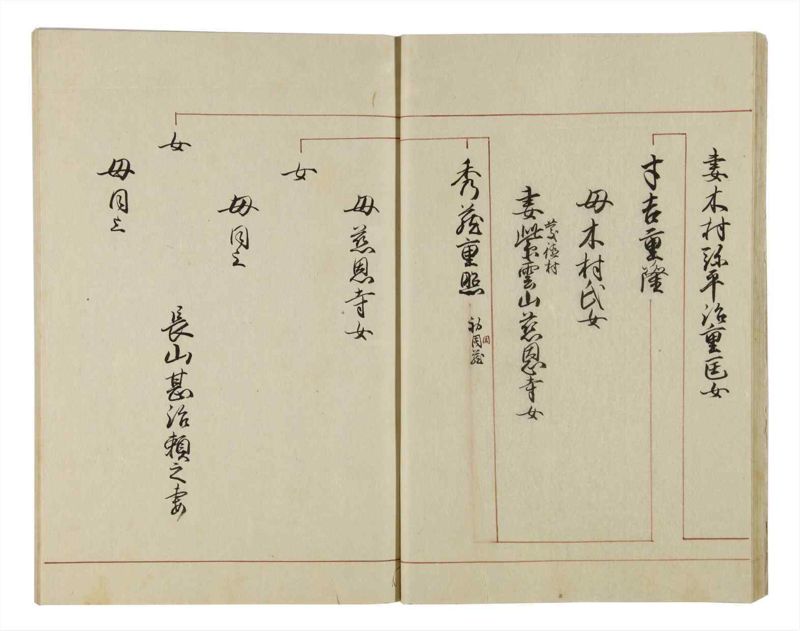 妻木村弥平治重匡女
才吉重隆
母木村氏女
妻紫雲山慈恩寺女
秀蔵重照
母慈恩寺女
女
母同上
長山甚治頼之妻
女
母同上